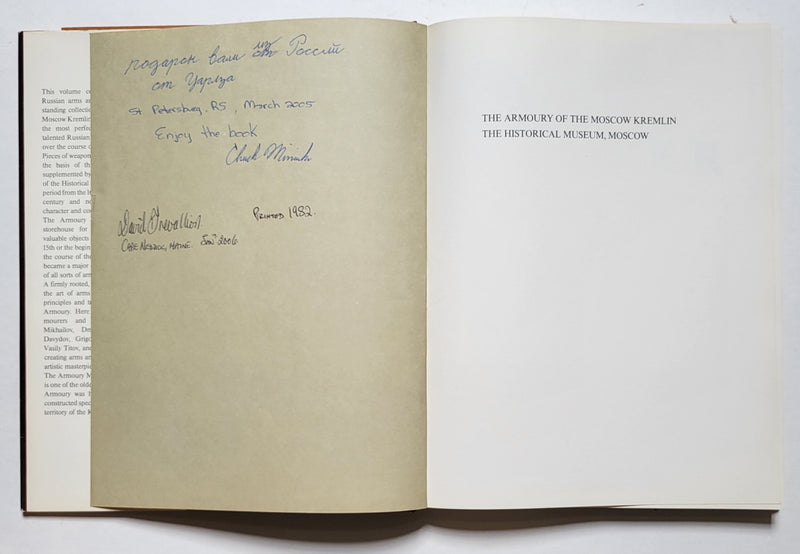 This volume
Russian arms
standing collecti
Moscow Kremlin
the most perfe
talented Russian
over the course o
Pieces of weapon
the basis of th
supplemented by
of the Historical
period from the
century and
character and
The Armoury
storehouse for
valuable objects
15th or the begin
the course of the
became a major
of all sorts of arm
A firmly rooted,
the art of arms
principles and
Armoury. Here
mourers and
Mikhailov,
Davydov,
Vasily Titov, and
creating arms
artistic masterpie
The Armoury
is one of the olde
Armoury was
constructed spec
territory of the
подарок вам из России
от
St Petersburg. RS, March 2005
Enjoy the book
Chuck
Printed 1982.
David
Cape Neddick, Maine. 2006
THE ARMOURY OF THE MOSCOW KREMLIN
THE HISTORICAL MUSEUM, MOSCOW